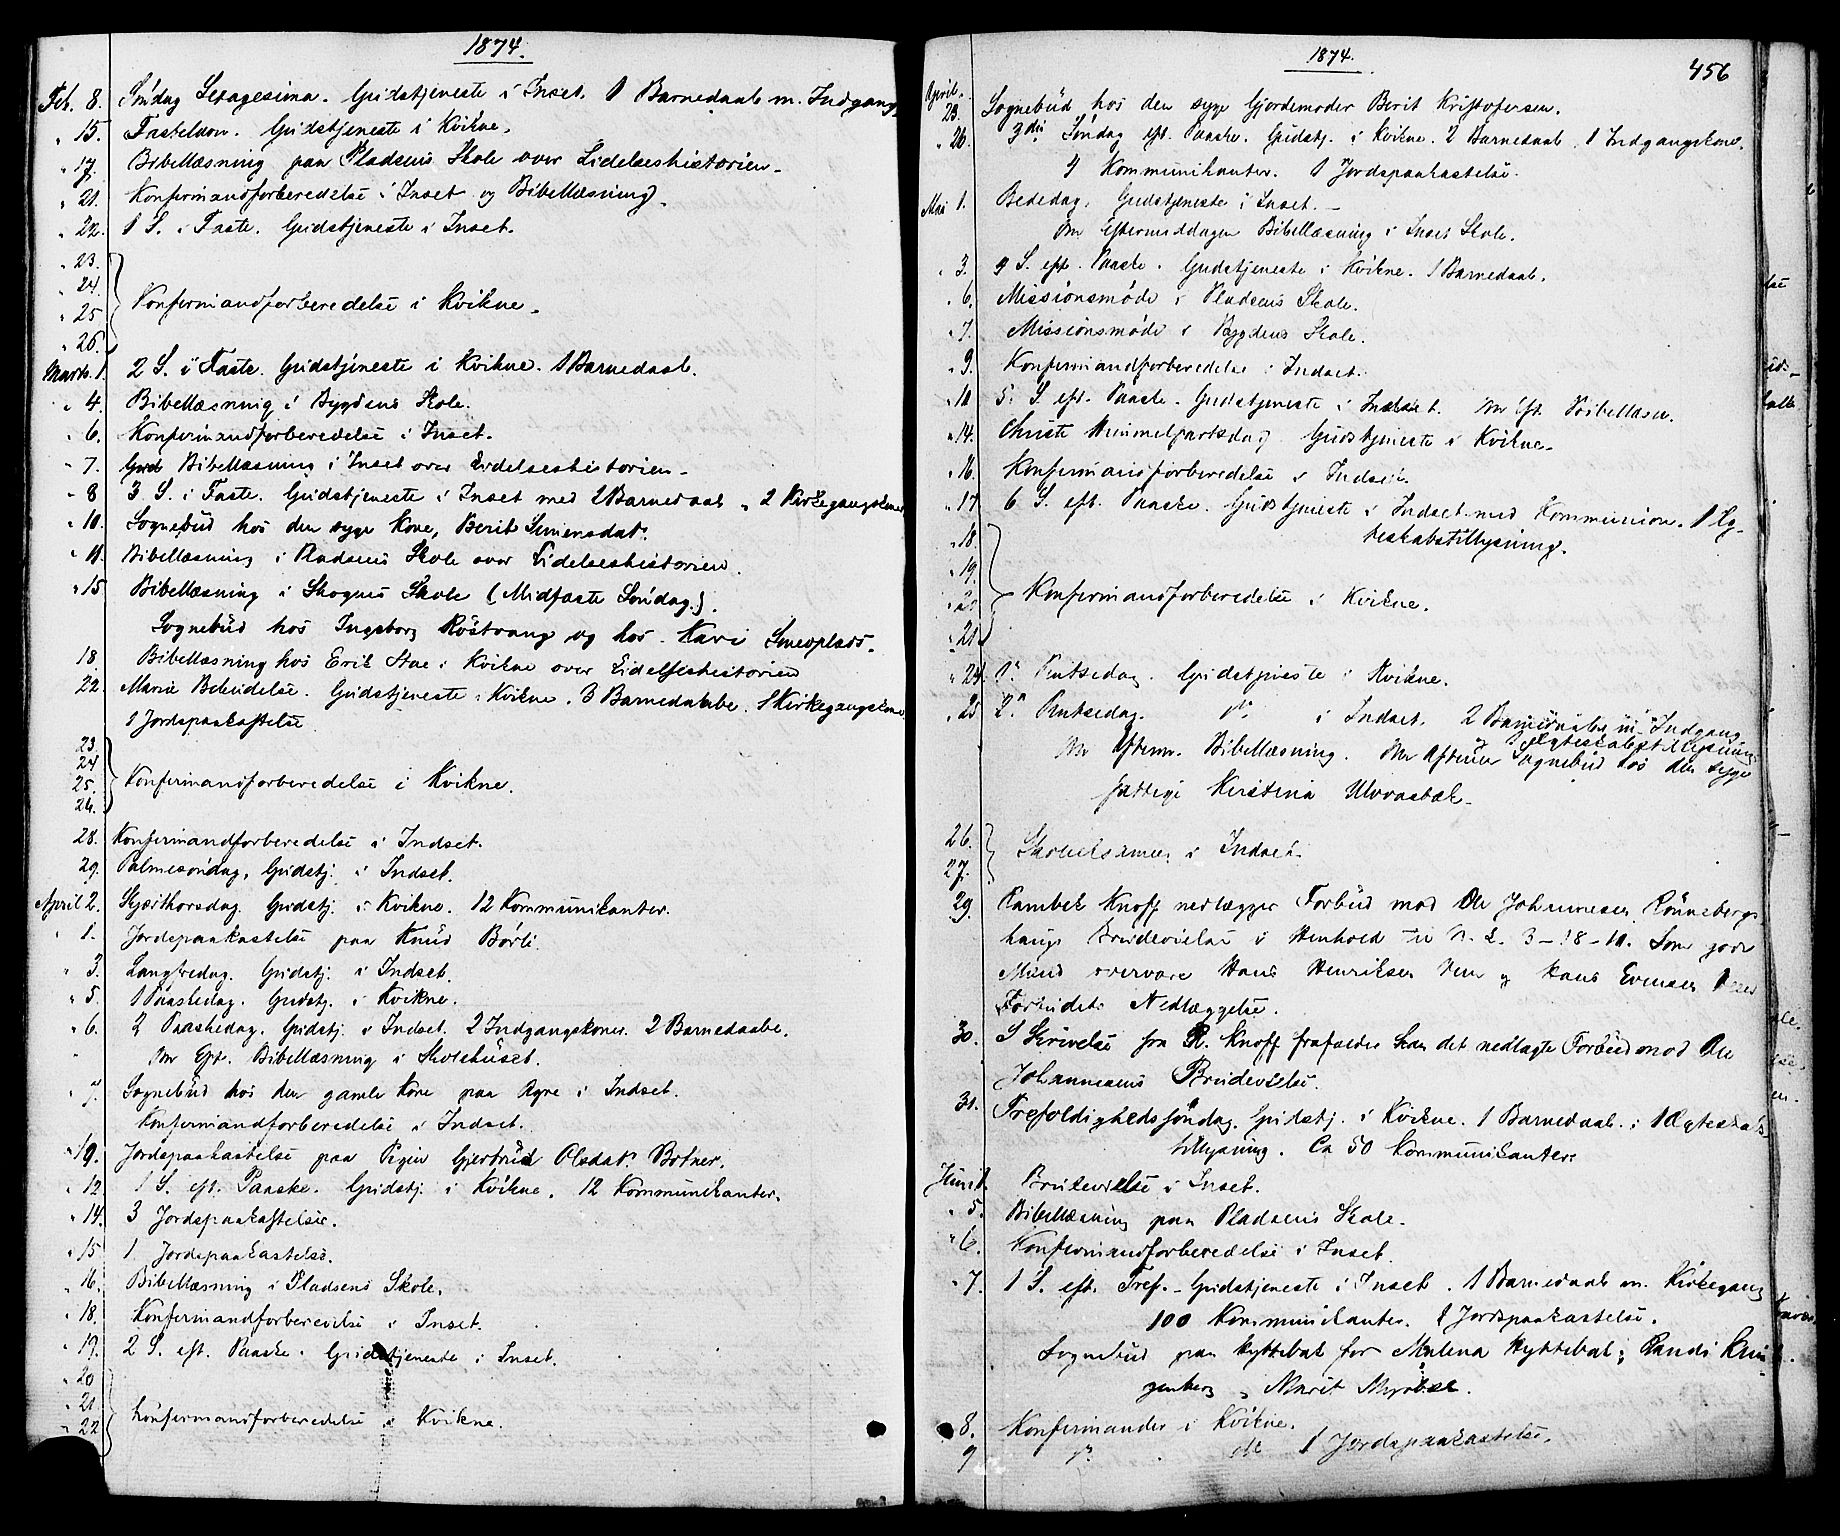 1874.
Feb. 8. Søndag Sexagesima. Gudstjeneste i Inset. 1 Barnedaab m. Indgang.
" 15. Fastelavn. Gudstjeneste i Kvikne.
" 17. Bibellæsning paa Pladsens Skole over Lidelseshistorien.
" 21. Konfirmandforberedelse i Inset og Bibellæsning.
" 22. 1 S. i Faste. Gudstjeneste i Inset.
" 23.
" 24.
" 25
" 26. Konfirmandforberedelse i Kvikne.
Marts. 1. 2 S. i Faste. Gudstjeneste i Kvikne. 1 Barnedaab.
" 4. Bibellæsning i Bygdens Skole.
" 6. Konfirmandforberedelse i Inset.
" 7. Gud Bibellæsning i Inset over Lidelseshistorien.
" 8 3 S. i Faste. Gudstjeneste i Inset med 2 Barnedaab " 2 Kirkegangskoner
" 10. Sognebud hos den syge Kone, Berit Simensdatr.
" 11. Bibellæsning i Pladsens Skole over Lidelseshistorien.
" 15 Bibellæsning i Skognes Skole (Midfaste Søndag).
Sognebud hos Ingeborg Røstvang og hos Kari Smeoplads.
18. Bibellæsning hos Erik Stue i Kvikne over Lidelseshistorien
22. Mariæ Bebudelse. Gudstjeneste i Kvikne. 3 Barnedaabe. 1 Kirkegangskone
1 Jordspaakastelse
23.
24
25.
26. Konfirmandforberedelse i Kvikne.
28. Konfirmandforberedelse i Indset.
29. Palmesøndag, Gudstj. i Indset.
April 2. Skjærthorsdag. Gudstj. i Kvikne. 12 Kommunikanter.
" 1. Jordspaakastelse paa Knud Børli.
" 3. Langfredag. Gudstj. i Indset.
" 5. 1 Paaskedag. Gudstj. i Kvikne.
" 6. 2 Paaskedag. Gudstj. i Indset. 2 Indgangskoner. 2 Barnedaabe.
Om Eft. Bibellæsning i Skolehuset.
" 7. Sognebud hos den gamle Kone paa Agre i Indset.
Konfirmandforberedelse i Indset.
" 10. Jordspaakastelse paa Pigen Gjertrud Olsdatr. Botner.
" 12 1 S. eft. Paaske. Gudstj. i Kvikne. 12 Kommunikanter.
" 14. 3 Jordspaakastelser.
" 15 1 Jordspaakastelse.
" 16. Bibellæsning i Pladsens Skole.
" 18. Konfirmandforberedelse i Inset.
" 19. 2 S. eft. Paaske. Gudstjeneste i Inset.
" 20
" 21.
" 22 Konfirmandforberedelse i Kvikne.
1874.
456
April.
23. Sognebud hos den syge Gjordemoder Berit Kristofersen.
" 26. 3die Søndag eft. Paaske. Gudstj. i Kvikne. 2 Barnedaab. 1 Indgangskone.
4 Kommunikanter. 1 Jordspaakastelse.
Mai 1. Bededag. Gudstjeneste i Inset.
Om Eftermiddagen Bibellæsning i Inset Skole.
" 3. 4 S. eft. Paaske. Gudstjeneste i Kvikne. 1 Barnedaab.
" 6. Missionsmøde i Pladsens Skole.
" 7. Missionsmøde i Bygdens Skole.
" 9. Konfirmandforberedelse i Indset.
" 10 5. S. eft. Paaske. Gudstjeneste i Indset. Om Eft. Bibellæsn.
" 14. Christi Himmelfartsdag Gudstjeneste i Kvikne.
" 16. Konfirmandforberedelse i Indset.
" 17 6 S. eft. Paaske. Gudstjeneste i Indset med Kommunion. 1 Æg-
teskabstillysning.
" 18.
" 19.
" 20
" 21 Konfirmandforberedelse i Kvikne.
" 24. 1e Pintsedag. Gudstjeneste i Kvikne.
" 25 2n Pintsedag. do i Indset. 2 Barnedaabe m. Indgang
1 Ægteskabstillysning
Om Efterm. Bibellæsning. Om Aftenen Sognebud hos den syge
fattige Kirstina Ulvvasbæk.
26.
27. i Indset.
29. Rambek Knoff nedlægger Forbud mod Ole Johannesen Rønnebergs
haugs Brudevielse i Henhold til N. L. 3-18-10. Som gode
Mænd overvare Hans Henriksen og Hans Evensen
Forbudets Nedlæggelse.
30. I Skrivelse fra R. Knoff frafalder han det nedlagte Forbud mod Ole
Johannesens Brudevielse.
31. Trefoldighedssøndag. Gudstj. i Kvikne. 1 Barnedaab. 1 Ægteskabs
tillysning. Ca 50 Kommunikanter.
Juni 1. Brudevielse i Inset.
" 5. Bibellæsning paa Pladsens Skole.
" 6. Konfirmandforberedelse i Inset.
" 7. 1 S. eft. Tref. Gudstjeneste i Inset. 1 Barnedaab m. Kirkegang
100 Kommunikanter. 1 Jordspaakastelse.
Sognebud paa Hyttebak for Malena Hyttebak; Randi Krin-
genberg " Marit Myrbæk.
" 8. Konfirmander i Kvikne.
" 9 do do 1 Jordspaakastelse.